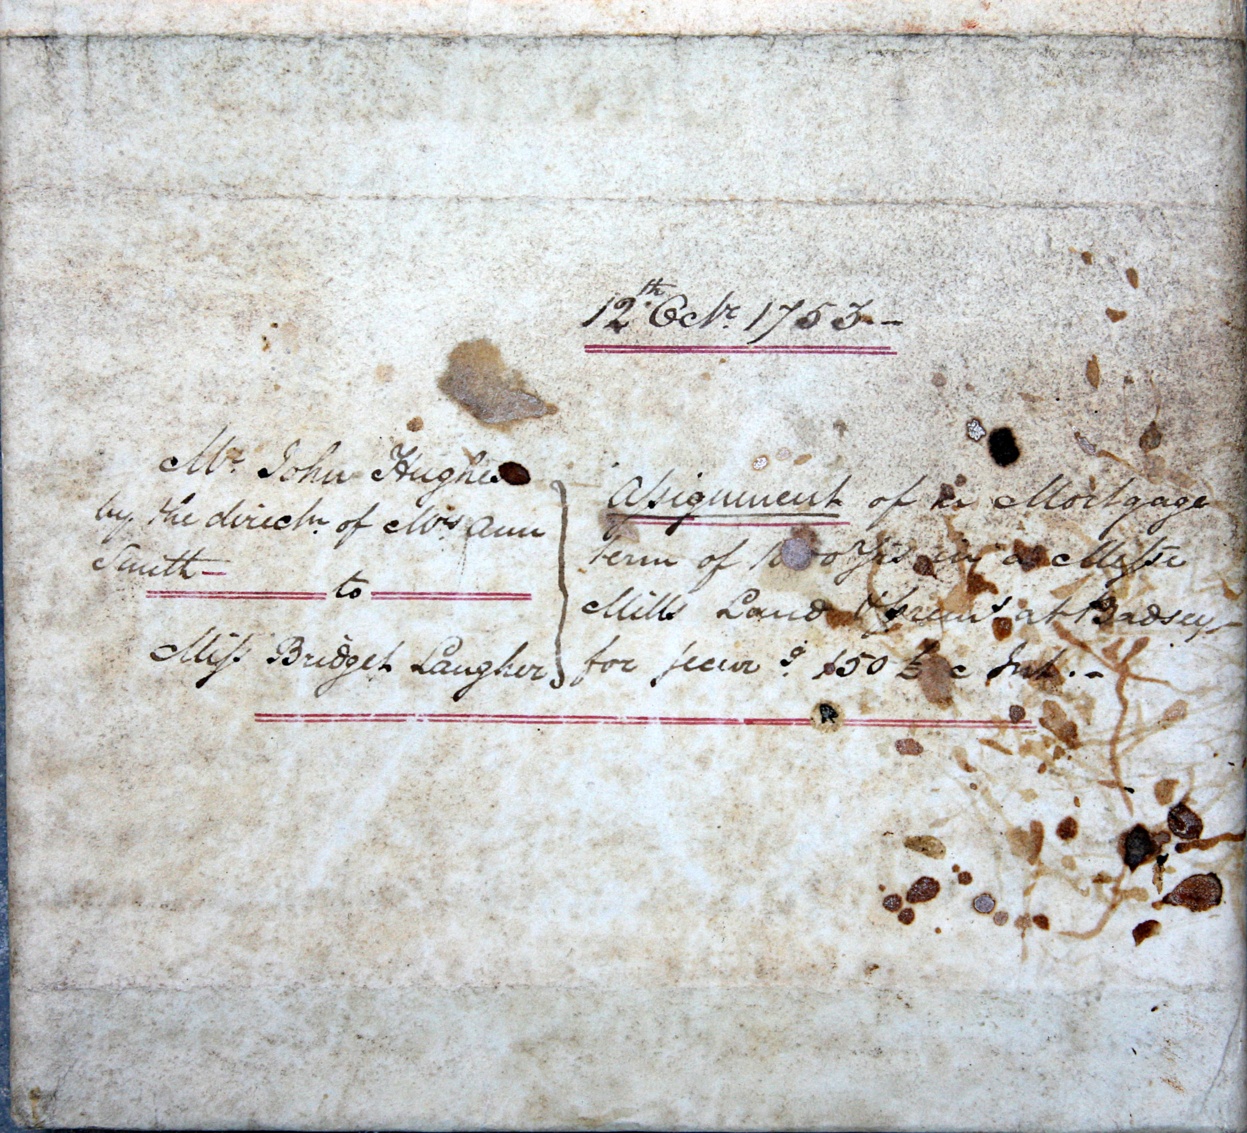 12th Octr. 1753 –
Mr. John Hughes
by the directn. of Mrs Ann
Smith –
to
Miss Bridget Laugher
Assignment of a Mortgage
term of 1000 Yrs in a Messe
Mills Land & prems at Badsey –
for secur g. £150 & Int. –